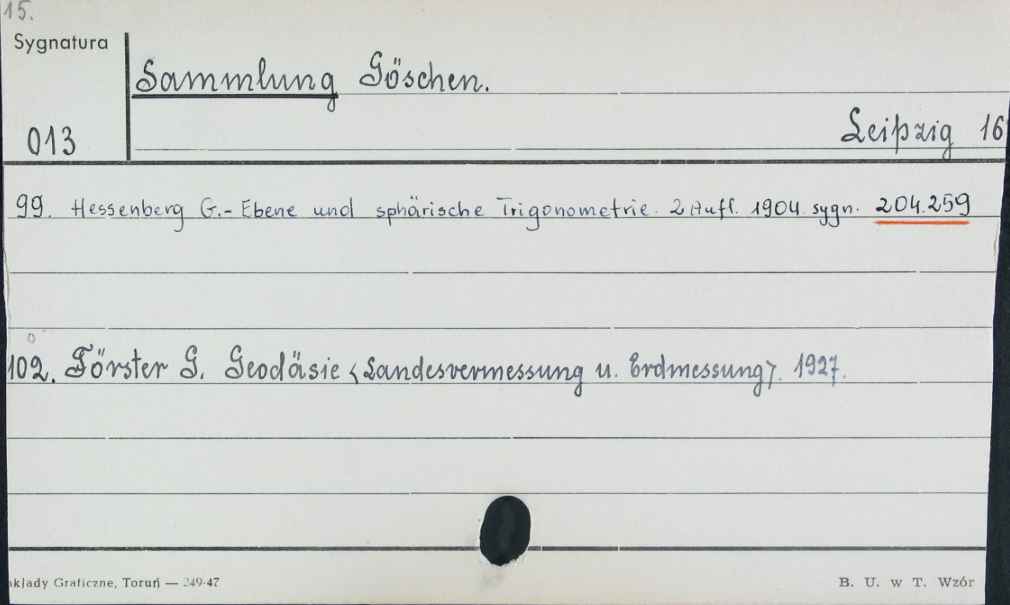 15.
Sygnatura
Sammlung Göschen.
013
Leipzig 16
99. Hessenberg G.- Ebene und sphärische Trigonometrie. 2 Aufl. 1904. sygn. 204.259
102. Förster G. Geodäsie <Landesvermessung u. Erdmessung>. 1927.
akłady Graficzne, Toruń — 249-47
B. U. w T. Wzór